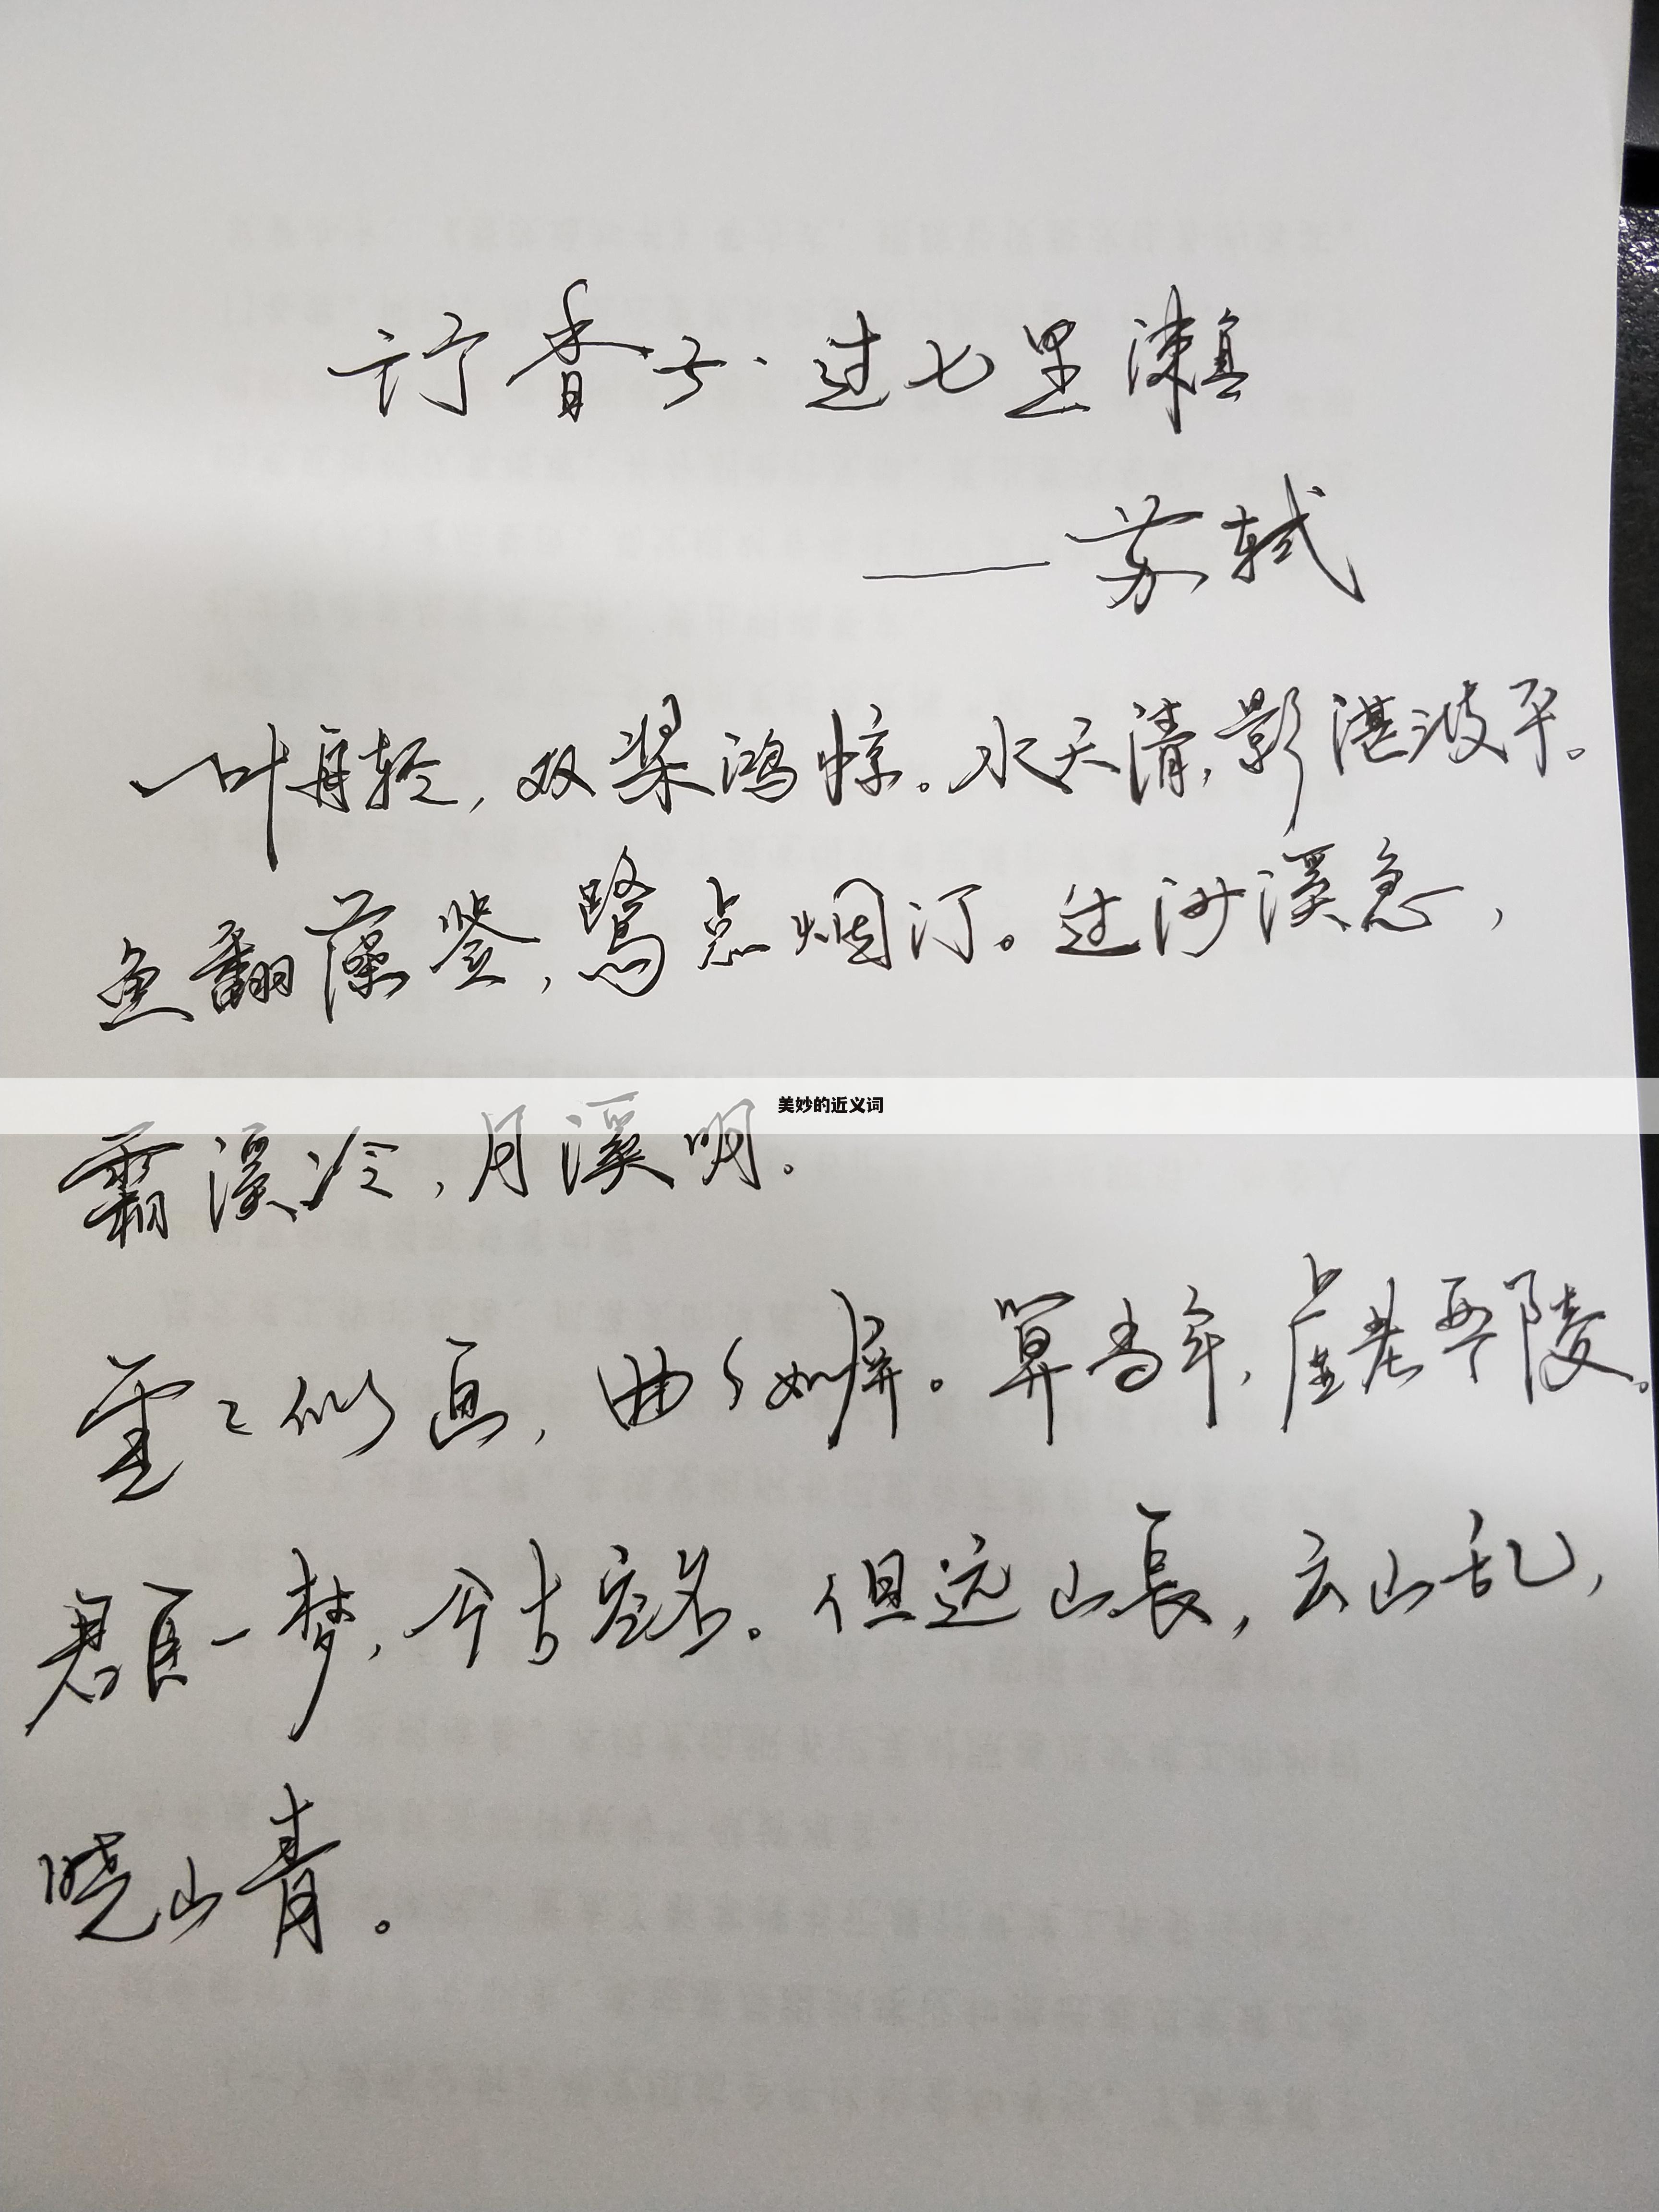 行香子·过七里濑
——苏轼
一叶舟轻，双桨鸿惊。水天清，影湛波平。
鱼翻藻鉴，鹭点烟汀。过沙溪急，
美妙的近义词
霜溪冷，月溪明。
重重似画，曲曲如屏。算当年，虚老严陵。
君臣一梦，今古空名。但远山長，云山乱，
晓山青。